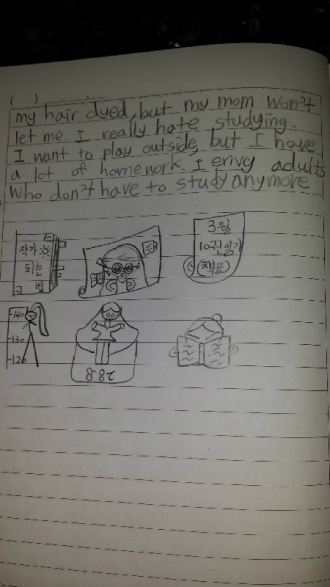 ( )
my hair dyed, but my mom won't
let me. I really hate studying.
I want to play outside, but I have
a lot of homework. I envy adults
who don't have to study anymore
작가 
되는
3월
10권 읽기
(책을)
-140
-130
-120